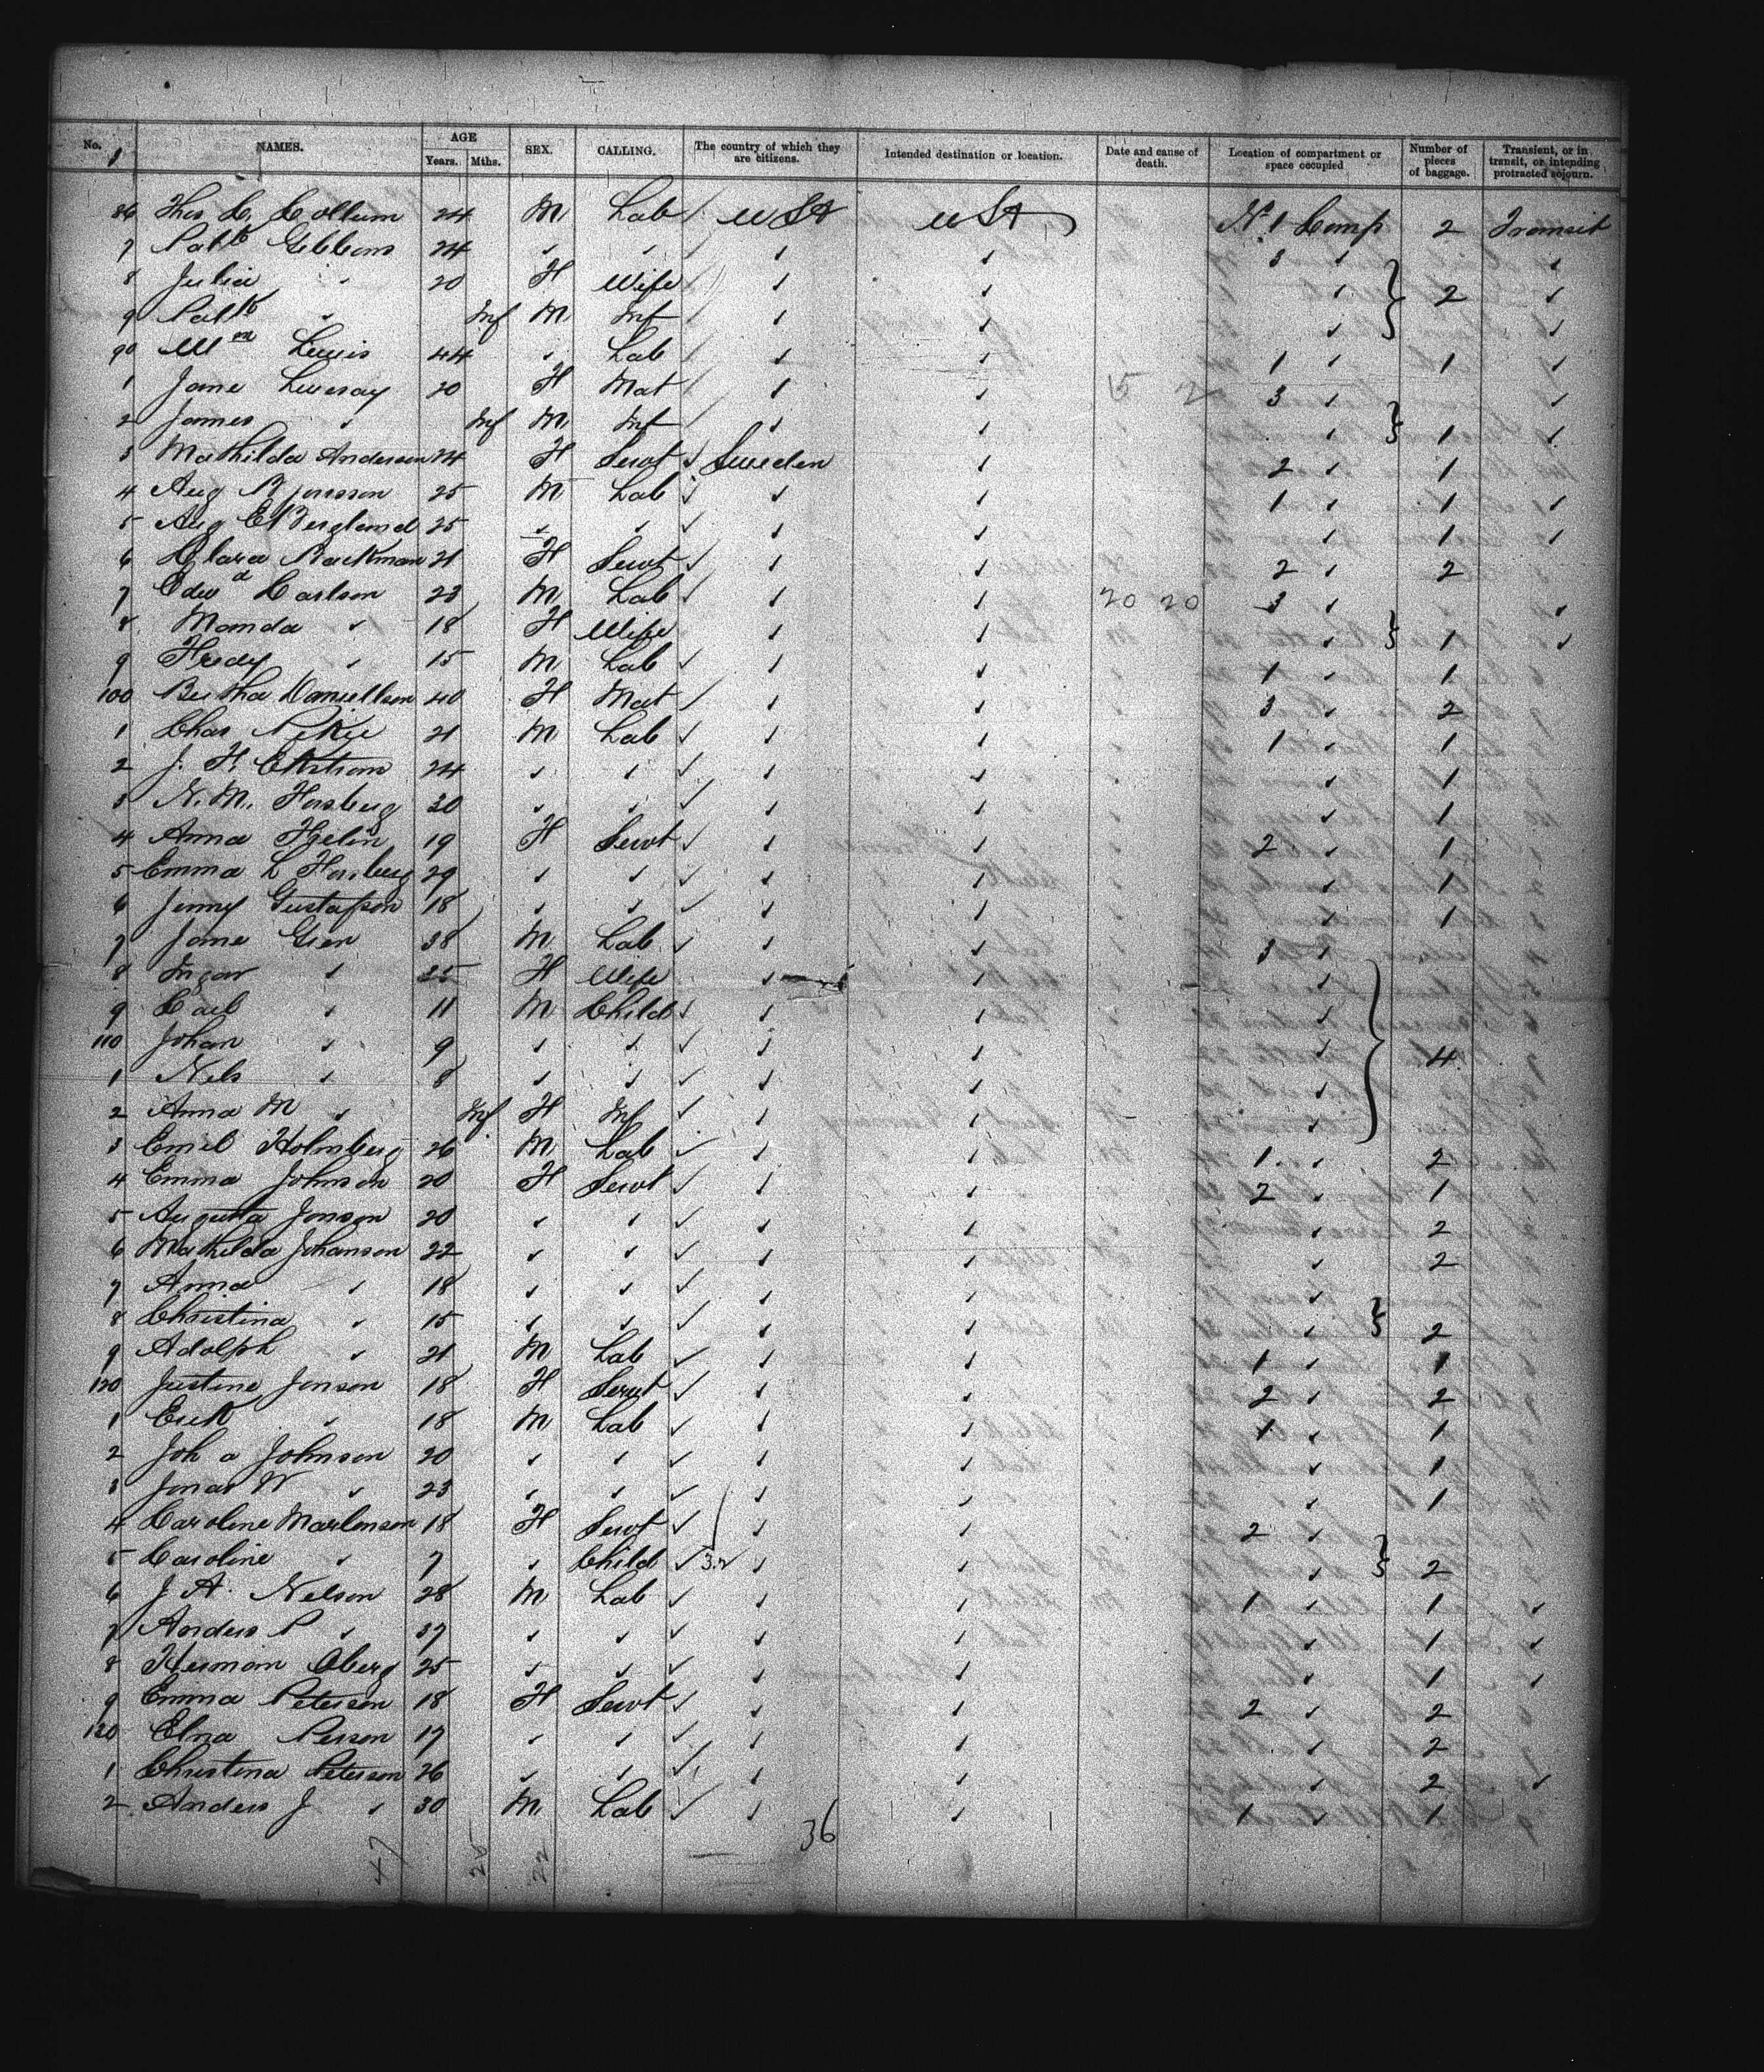 No. NAMES. AGE Years. Mths. SEX. CALLING. The country of which they are citizens. Intended destination or location. Date and cause of death. Location of compartment or space occupied Number of pieces of baggage. Transient, or in transit, or intending protracted sojourn.
86 Thos C. Collum 24 M Lab U St U St No 1 Comp 2 Transit
7 Patk Gibbons 24 ✓ ✓ ✓ ✓ 3 ✓ ✓
8 Julia ✓ 20 F Wife ✓ ✓ ✓ 2 ✓
9 Patk ✓ Inf M Inf ✓ ✓ ✓ ✓
90 Wm Lewis 44 ✓ Lab ✓ ✓ 1 ✓ 1 ✓
1 Jane 20 F Mat ✓ ✓ 5 2 3 ✓ ✓
2 James ✓ Inf M Inf ✓ ✓ ✓ 1 ✓
3 Mathilda Anderson 24 F Servt ✓ Sweden ✓ 2 ✓ 1
4 Aug 25 M Lab ✓ ✓ ✓ 1 ✓ 1 ✓
5 Aug E Berglund 25 ✓ ✓ ✓ ✓ ✓ ✓ 1 ✓
6 Clara Backman 21 F Servt ✓ ✓ ✓ 2 ✓ 2
7 Edwd Carlson 23 M Lab ✓ ✓ ✓ 20 20 3 ✓ ✓
8 Manda ✓ 18 F Wife ✓ ✓ ✓ 1 ✓
9 Fredy ✓ 15 M Lab ✓ ✓ ✓ 1 ✓ 1
100 Bertha Daniellson 40 F Mat ✓ ✓ ✓ 3 ✓ 2
1 Chas 21 M Lab ✓ ✓ ✓ 1 ✓ 1
2 J. F. Ekstrom 24 ✓ ✓ ✓ ✓ ✓ ✓ 1
3 N. M. Forsberg 30 ✓ ✓ ✓ ✓ ✓ ✓ 1
4 Anna 19 F Servt ✓ ✓ ✓ 2 ✓ 1
5 Emma L Forsberg 29 ✓ ✓ ✓ ✓ ✓ ✓ 1
6 Jenny Gustafson 18 ✓ ✓ ✓ ✓ ✓ ✓ 1
7 Jane 38 M Lab ✓ ✓ ✓ 3 ✓
8 Ingar ✓ 25 F Wife ✓ ✓ ✓
9 Carl ✓ 11 M Child ✓ ✓ ✓ ✓
110 Johan ✓ 9 ✓ ✓ ✓ ✓ ✓ ✓ 4
1 Nels ✓ 8 ✓ ✓ ✓ ✓ ✓ ✓
2 Anna M ✓ Inf F Inf ✓ ✓ ✓ ✓
3 Emil Holmberg 26 M Lab ✓ ✓ ✓ 1 ✓ 2
4 Emma Johnson 20 F Servt ✓ ✓ ✓ 2 ✓ 1
5 Augusta Jonson 20 ✓ ✓ ✓ ✓ ✓ ✓ 2
6 Mathilda Johanson 22 ✓ ✓ ✓ ✓ ✓ ✓ 2
7 Anna ✓ 18 ✓ ✓ ✓ ✓ ✓ ✓
8 Christina ✓ 15 ✓ ✓ ✓ ✓ ✓ ✓ 2
9 Adolph ✓ 21 M Lab ✓ ✓ ✓ 1 ✓ 1
120 Justine Jonson 18 F Servt ✓ ✓ ✓ 2 ✓ 2
1 Erik ✓ 18 M Lab ✓ ✓ ✓ 1 ✓ 1
2 Joh a Johnson 20 ✓ ✓ ✓ ✓ ✓ ✓ 1
3 Jonas W ✓ 23 ✓ ✓ ✓ ✓ ✓ ✓ 1
4 Caroline 18 F Servt ✓ ✓ ✓ 2 ✓
5 Caroline ✓ 7 ✓ Child ✓ 32 ✓ ✓ ✓ 2
6 J. A. Nelson 28 M Lab ✓ ✓ ✓ 1 ✓ 1 ✓
7 Anders P ✓ 37 ✓ ✓ ✓ ✓ ✓ ✓ 1 ✓
8 Herman Oberg 25 ✓ ✓ ✓ ✓ ✓ ✓ 1 ✓
9 Emma Peterson 18 F Servt ✓ ✓ ✓ 2 ✓ 2
130 Elna Person 17 ✓ ✓ ✓ ✓ ✓ ✓ 2
1 Christina Peterson 26 ✓ ✓ ✓ ✓ ✓ ✓ 2 ✓
2 Anders J ✓ 30 M Lab ✓ ✓ ✓ 1 ✓ 1
47 25 22 36